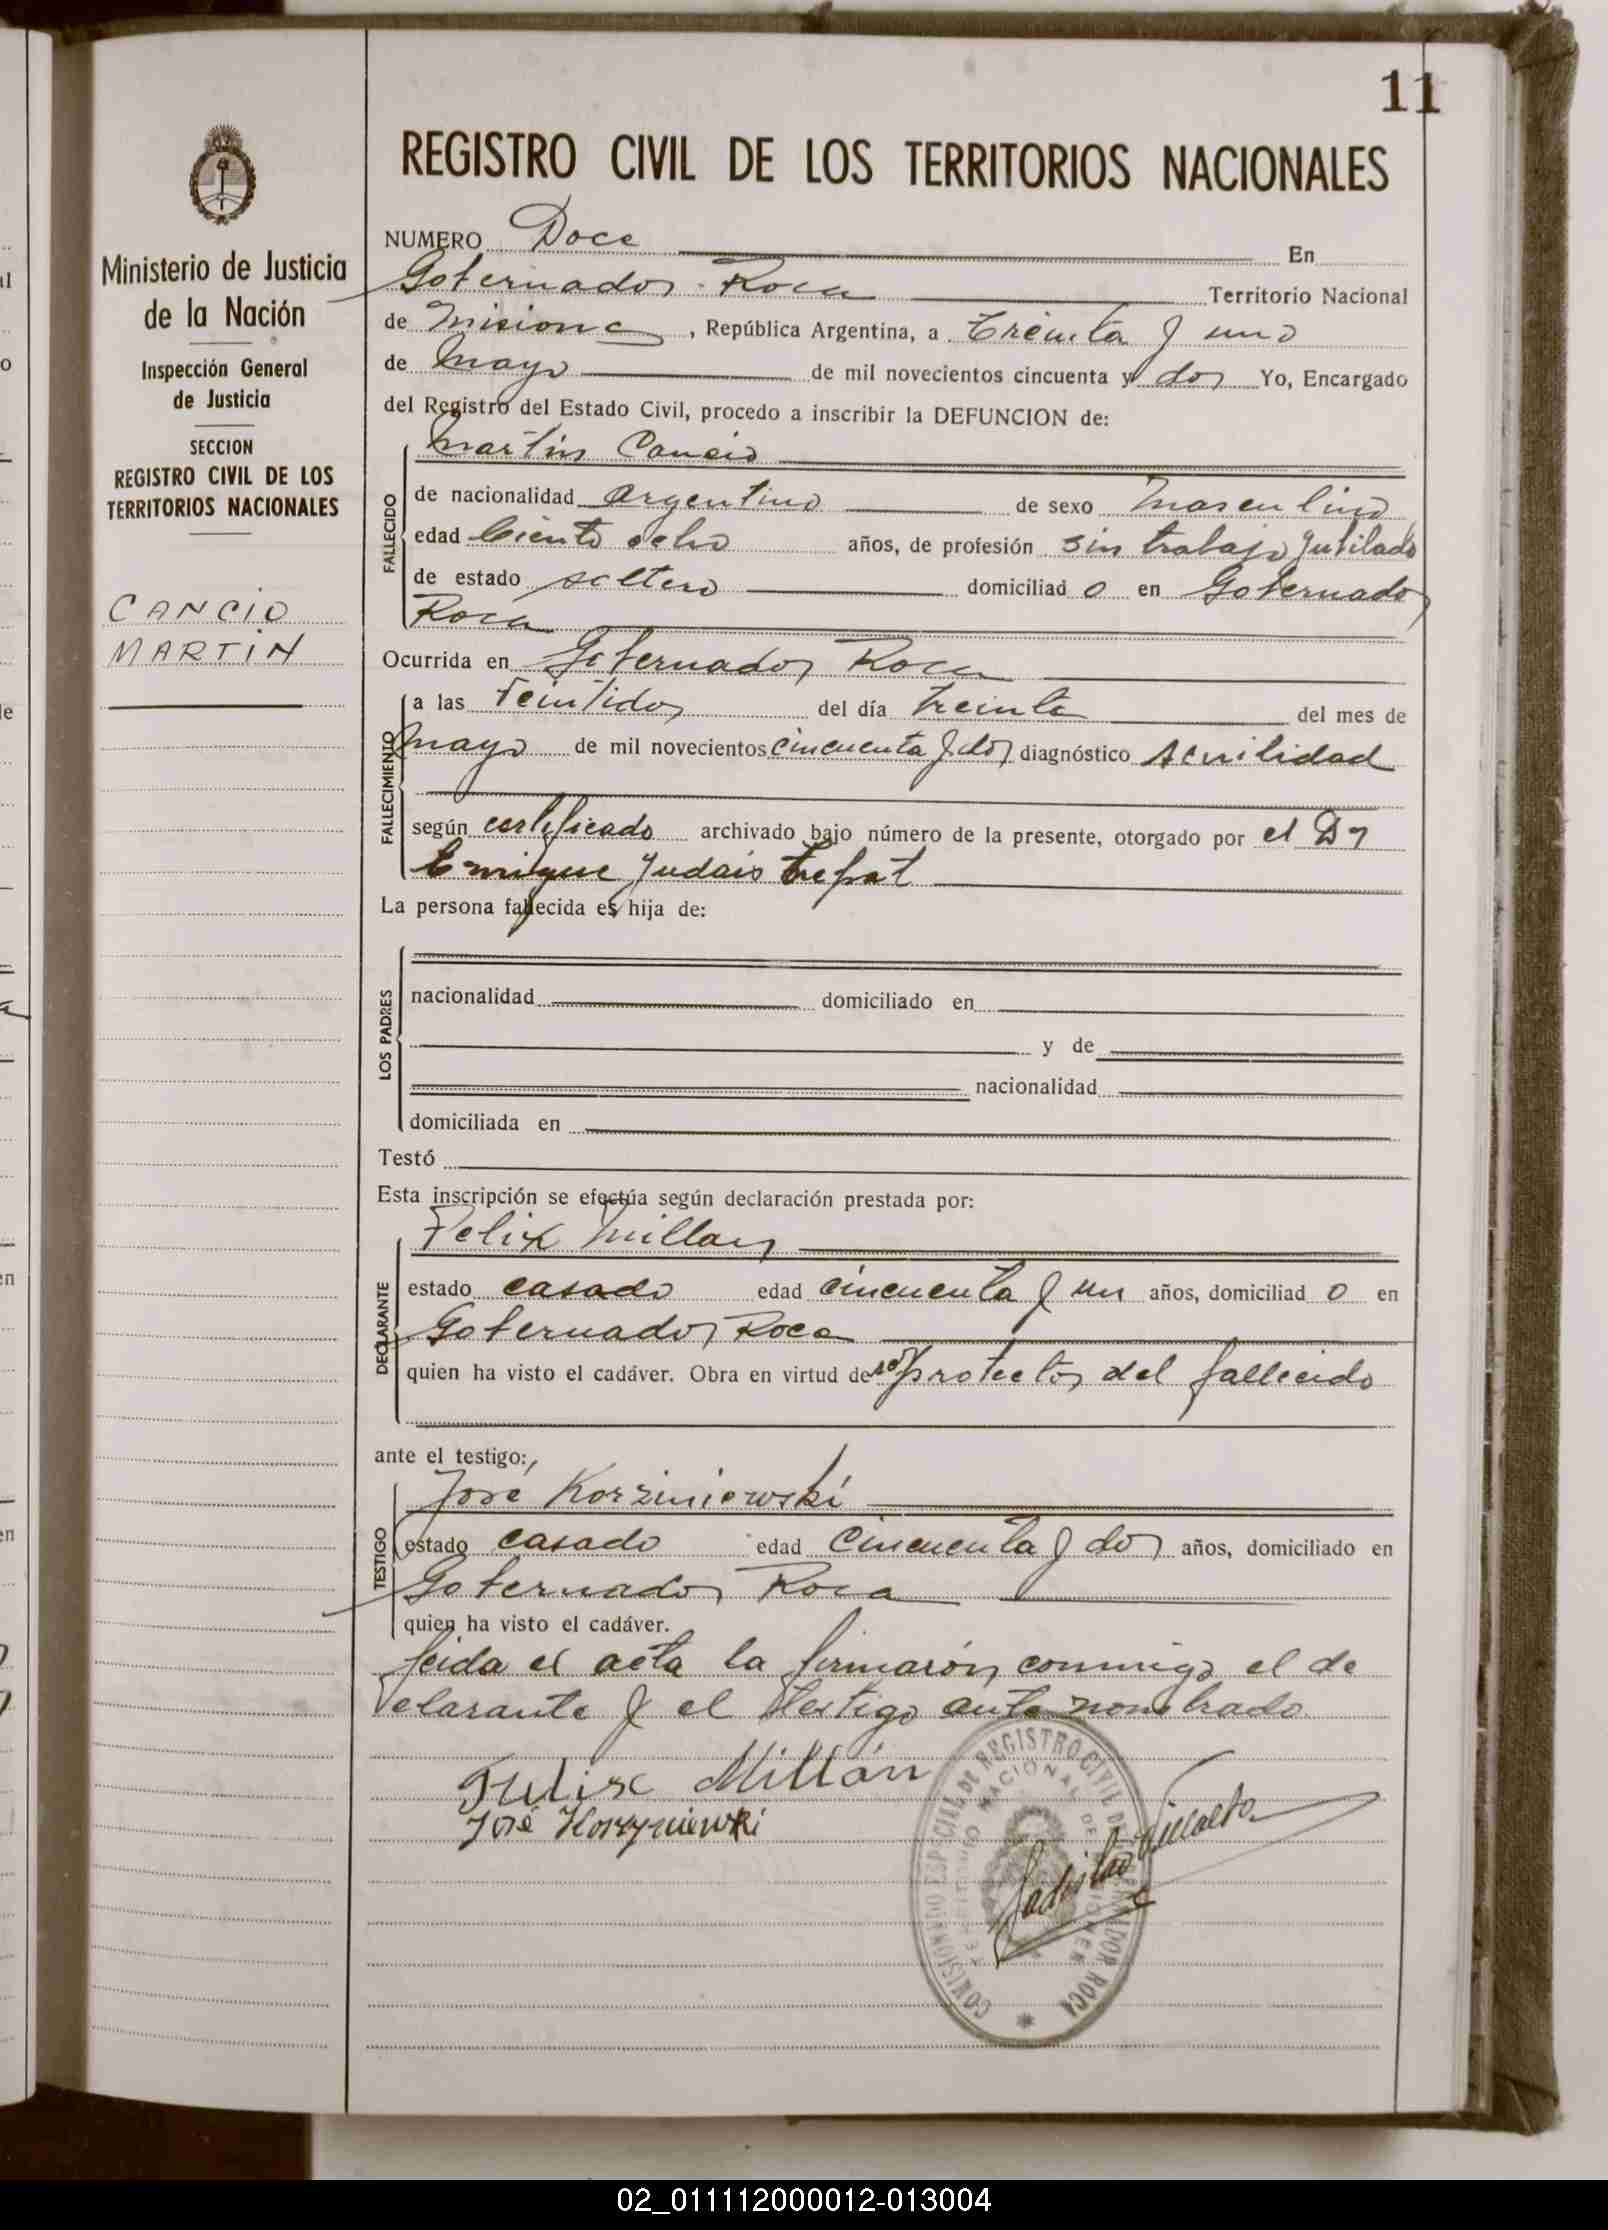 11
REGISTRO CIVIL DE LOS TERRITORIOS NACIONALES
Ministerio de Justicia
de la Nación
Inspección General
de Justicia
SECCION
REGISTRO CIVIL DE LOS
TERRITORIOS NACIONALES
CANCIO
MARTIN
NUMERO Doce En
Gobernador Roca Territorio Nacional
de Misiones, República Argentina, a treinta y uno
de Mayo de mil novecientos cincuenta y dos Yo, Encargado
del Registro del Estado Civil, procedo a inscribir la DEFUNCION de:
Martin Cancio
FALLECIDO
de nacionalidad argentino de sexo masculino
edad Ciento ocho años, de profesión sin trabajo Jubilado
de estado soltero domiciliad o en Gobernador
Roca
Ocurrida en Gobernador Roca
FALLECIMIENTO
a las veintidos del día treinta del mes de
mayo de mil novecientos cincuenta y dos diagnóstico senilidad
según certificado archivado bajo número de la presente, otorgado por el Dr
Enrique Judais Trepat
La persona fallecida es hija de:
LOS PADRES
nacionalidad domiciliado en
y de
nacionalidad
domiciliada en
Testó
Esta inscripción se efectúa según declaración prestada por:
Felix Millan
DECLARANTE
estado casado edad cincuenta y un años, domiciliad o en
Gobernador Roca
quien ha visto el cadáver. Obra en virtud de ser protector del fallecido
ante el testigo:
José Korziniewski
TESTIGO
estado casado edad cincuenta y dos años, domiciliado en
Gobernador Roca
quien ha visto el cadáver.
leida el acta la firmarón conmigo el de
clarante y el testigo ante nombrado
Felix Millán
José Korzyniewski
COMISIONADO ESPECIAL DE REGISTRO CIVIL DE GOBERNADOR ROCA
TERRITORIO NACIONAL DE MISIONES
Ladislao
02_011112000012-013004